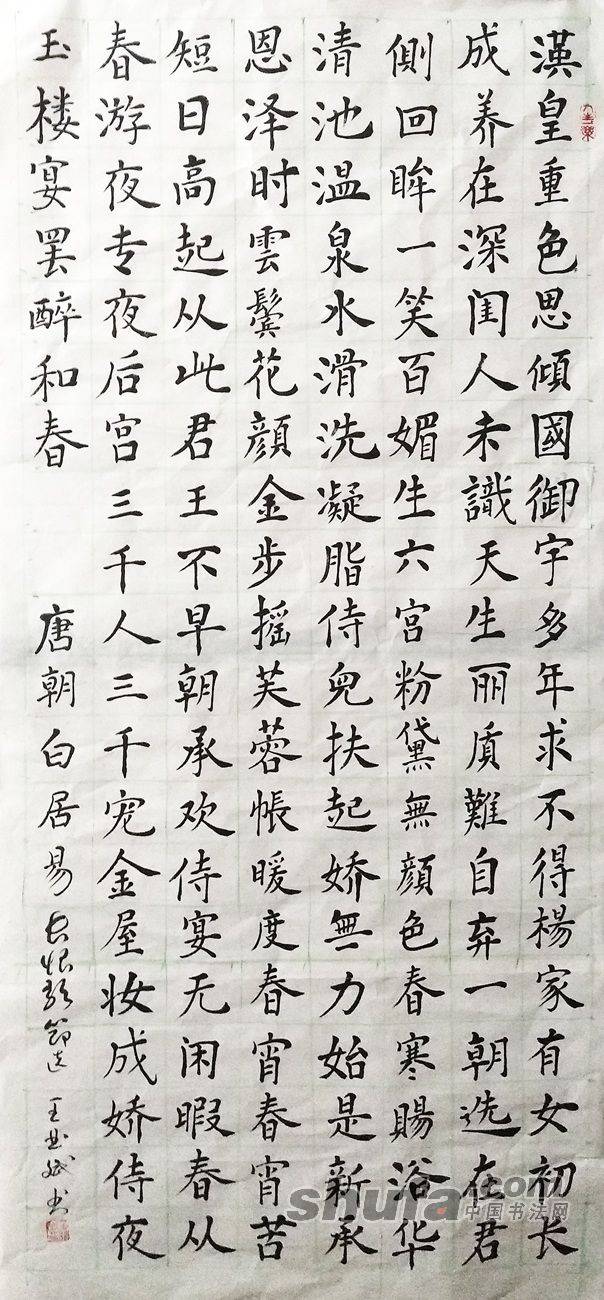 漢皇重色思傾國御宇多年求不得楊家有女初长
成养在深闺人未識天生丽质難自弃一朝选在君
侧回眸一笑百媚生六宫粉黛無顔色春寒賜浴华
清池温泉水滑洗凝脂侍兒扶起娇無力始是新承
恩泽时雲鬓花顔金步摇芙蓉帳暖度春宵春宵苦
短日高起从此君王不早朝承欢侍宴无闲暇春从
春游夜专夜后宫三千人三千宠金屋妆成娇侍夜
玉楼宴罢醉和春 唐朝白居易长恨歌節选 王
shufa.com
中国书法网